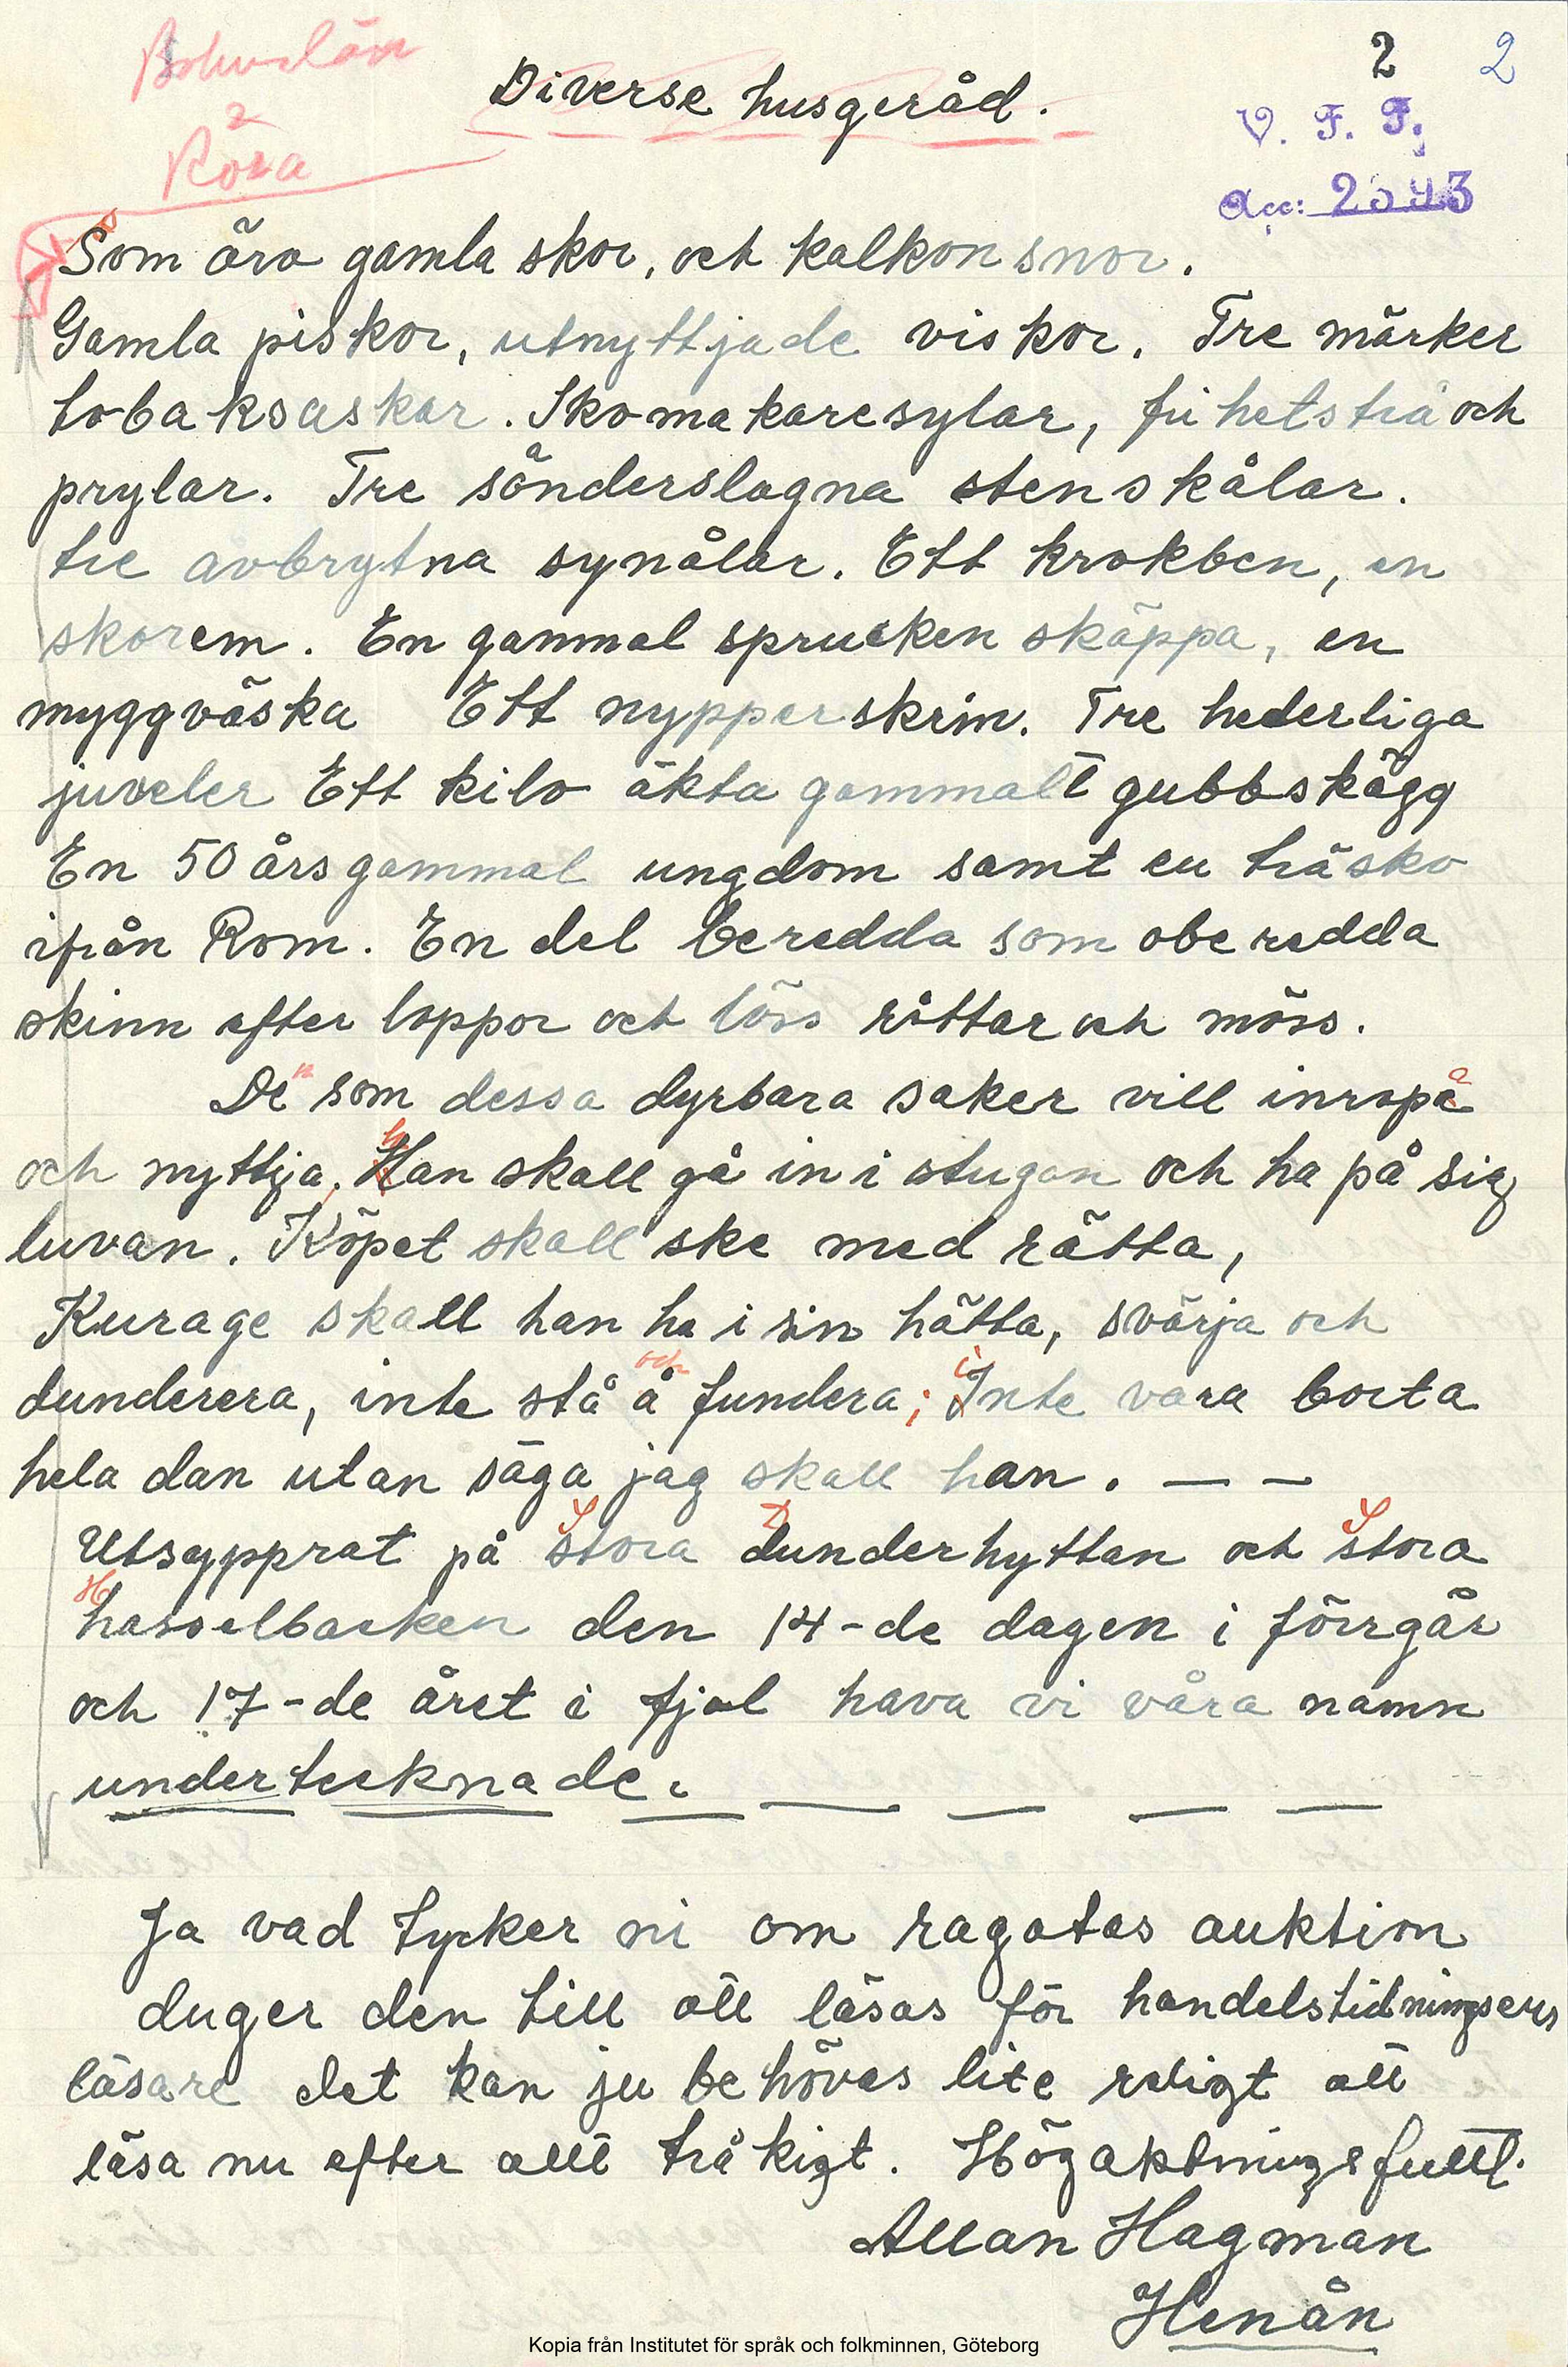 Bohuslän
2
Röra
Diverse husgeråd.
2 2
V. F. F.
Acc: 2543
Som äro gamla skor, och kalkon snor.
Gamla piskor, utnyttjade viskor. Tre märker
tobaksaskar. Skomakaresylar, frihetsträ och
prylar. Tre sönderslagna stenskålar.
tre avbrytna synålar. Ett krokben, en
skorem. En gammal sprucken skäppa, en
myggväska Ett nypperskrin. Tre hederliga
juveler Ett kilo äkta gammalt gubbskägg
En 50 årsgammal ungdom samt en träsko
ifrån Rom. En del beredda som oberedda
skinn efter loppor och löss råttar och möss.
De som dessa dyrbara saker vill inropa
och nyttja, Han skall gå in i stugan och ha på sig
luvan. Köpet skall ske med rätta,
Kurage skall han ha i sin hätta, svärja och
dunderera, inte stå å fundera; Inte vara borta
hela dan utan säga jag skall han. — —
Utsypprat på stora dunderhyttan och stora
hasselbacken den 14-de dagen i förrgår
och 17-de året i fjol hava vi våra namn
undertecknade.
Ja vad tycker ni om ragatas auktion
duger den till att läsas för handelstidningsens
läsare det kan ju behövas lite roligt att
läsa nu efter allt tråkigt. Högaktningsfullt.
Allan Hagman
Henån
Kopia från Institutet för språk och folkminnen, Göteborg